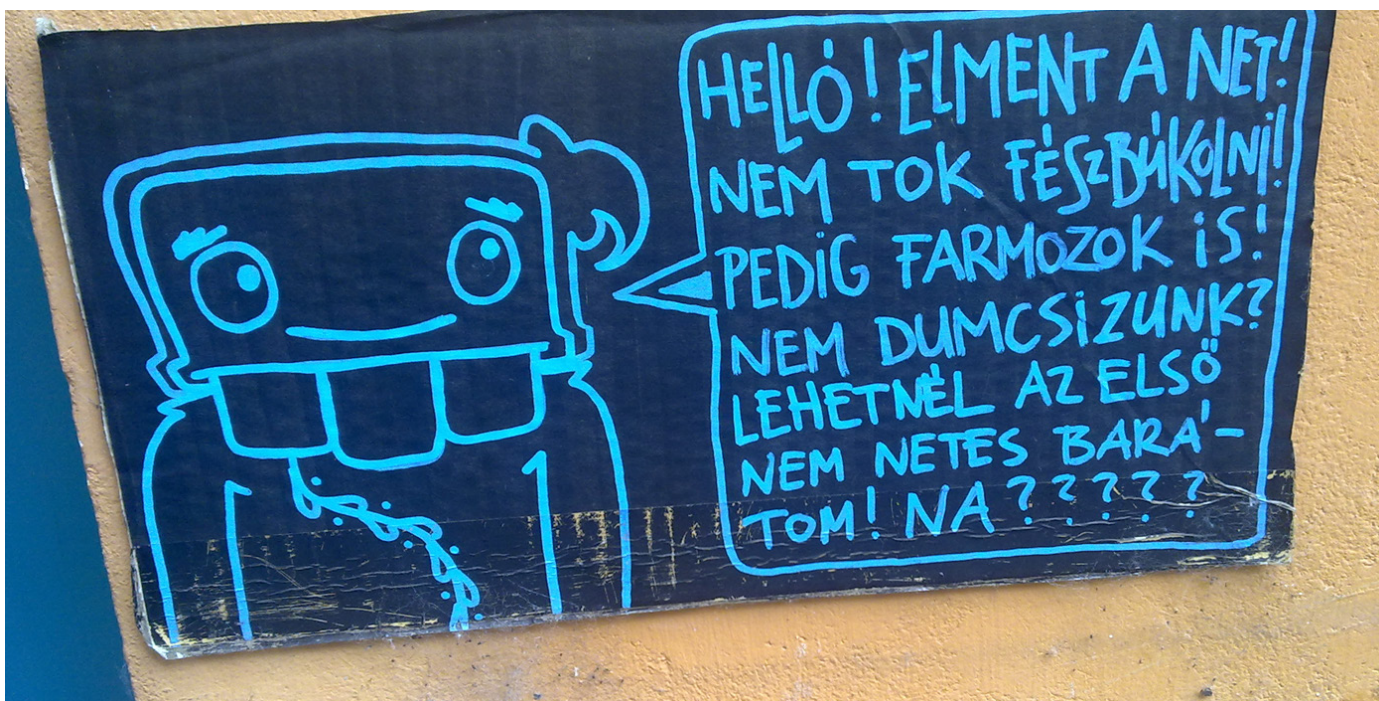 HELLÓ! ELMENT A NET!
NEM TOK FÉSZBÚKOLNI!
PEDiG FARMOZOK iS!
NEM DUMCSiZUNK?
LEHETNÉL AZ ELSŐ
NEM NETES BARÁ-
TOM! NA?????